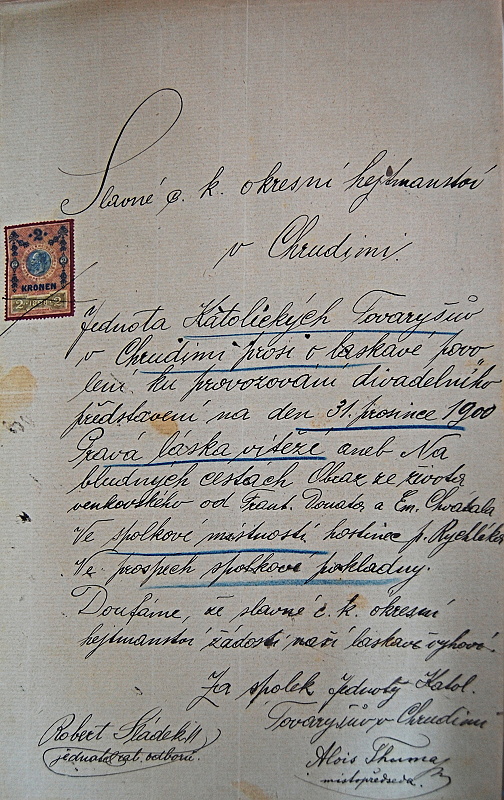 Slavné c. k. okresní hejtmanství
v Chrudimi.
2
KRONEN
2 1898 2
Jednota Katolických Tovaryšův
v Chrudimi prosí o laskavé povo
lení ku provozování divadelního
představení na den 31. prosince 1900
Pravá láska vítězí aneb Na
bludných cestách Obraz ze života
venkovského od Frant. Donata, a Em. Chvátala
Ve spolkové místnosti hostinec p. Rychlíka
Ve prospěch spolkové pokladny.
Doufáme, že slavné c. k. okresní
hejtmanství žádosti naší laskavě vyhoví.
Za spolek Jednoty Katol.
Tovaryšův v Chrudimi
Robert Sládek
jednatel odborů.
Alois Thuma
místopředseda.